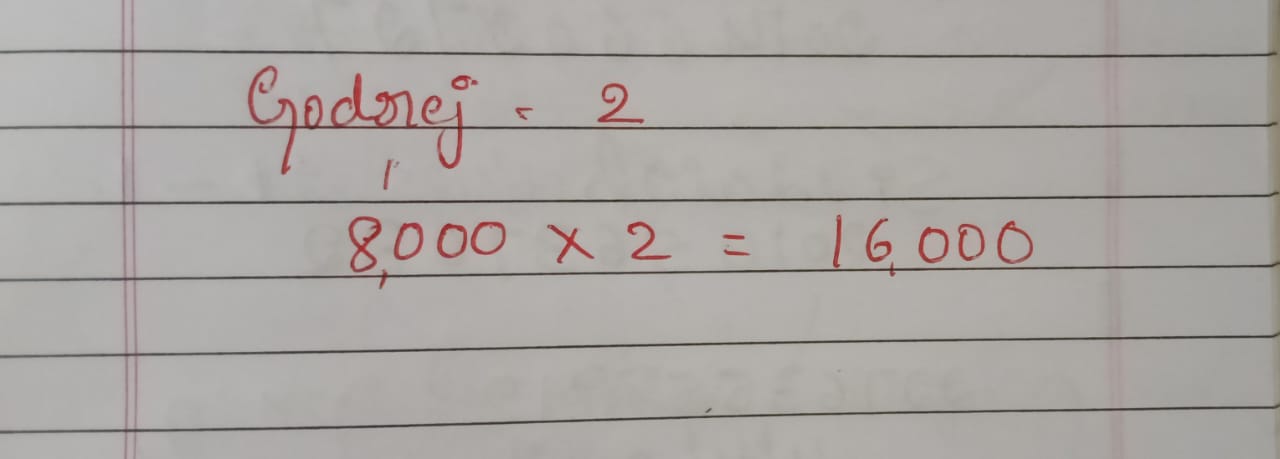 Godrej - 2
8,000 x 2 = 16,000